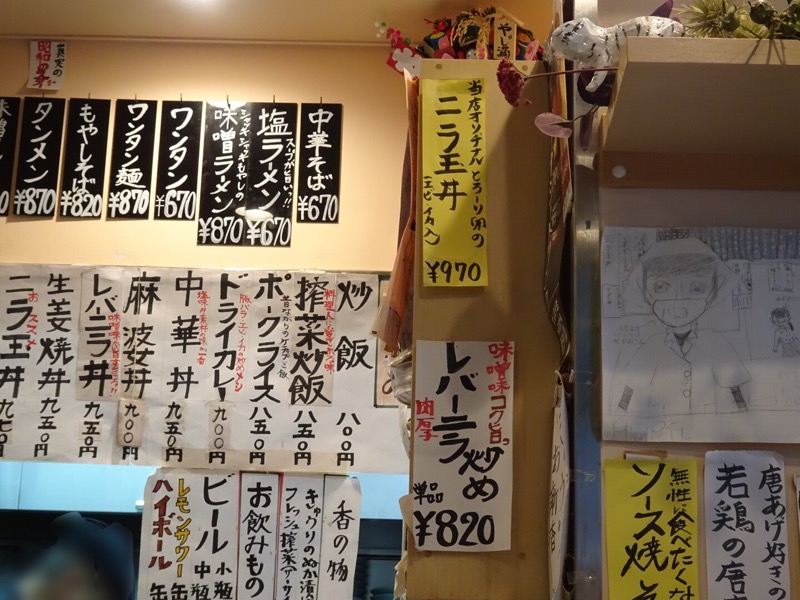 中華そば
¥670
スープが旨いっ!!
塩ラーメン
¥670
シャッキシャキもやしの
味噌ラーメン
¥870
ワンタン
¥670
ワンタン麺
¥870
もやしそば
¥820
タンメン
¥870
真実の
昭和
やし酒
当店オリヂナルとろーり卵の
ニラ玉丼
(エビ・イカ入)
¥970
炒飯
八〇〇円
搾菜炒飯
八五〇円
ポークライス
昔ながらのケチャップ飯
八五〇円
ドライカレー
豚バラ・エビ・イカの炒めメシ
九〇〇円
中華丼
九五〇円
麻波女丼
九〇〇円
レバーニラ丼
九五〇円
生姜焼丼
九五〇円
ニラ玉丼
おススメ
九七〇円
味噌味コク旨っ
レバーニラ炒め
肉厚
単品
¥820
香の物
きゅうりのぬか漬
フレッシュ搾菜
お飲みもの
ビール
小瓶
中瓶
レモンサワー 缶
ハイボール 缶
無性に食べたくな
ソース焼そ
唐あげ好きの
若鶏の唐